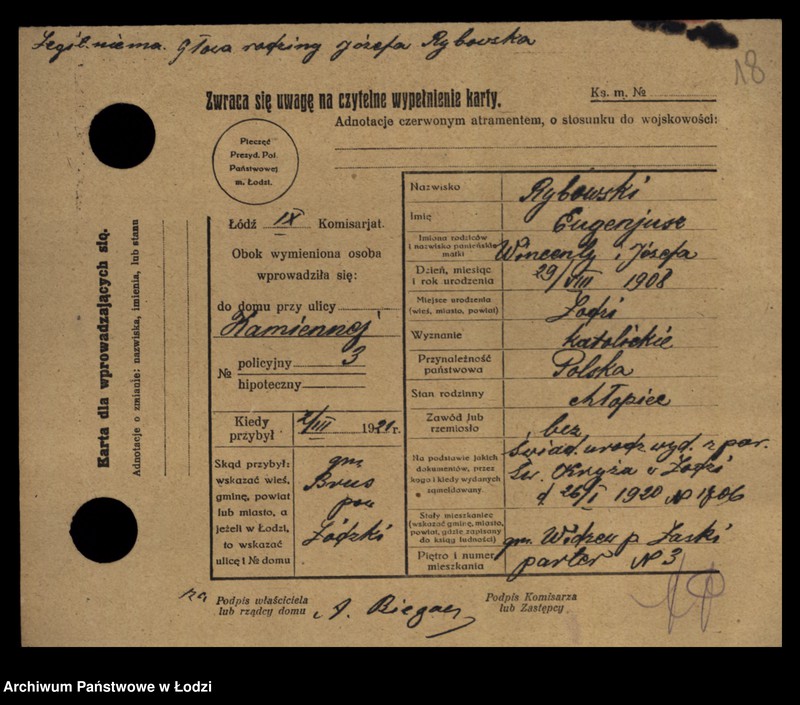 Legit. niema. Głowa rodziny Józefa Rybowska
18
Zwraca się uwagę na czytelne wypełnienie karty.
Ks. m. №
Adnotacje czerwonym atramentem, o stosunku do wojskowości:
Pieczęć
Prezyd. Pol.
Państwowej
m. Łodzi.
Łódź IX Komisarjat.
Obok wymieniona osoba
wprowadziła się:
do domu przy ulicy
Kamiennej
№ policyjny 3
hipoteczny
Kiedy przybył 2/III 1920 r.
Skąd przybył:
wskazać wieś,
gminę, powiat
lub miasto, a
jeżeli w Łodzi,
to wskazać
ulicę i № domu
gm
Brus
pow
Łódzki
Nazwisko Rybowski
Imię Eugenjusz
Imiona rodziców
i nazwisko panieńskie
matki
Wincenty i Józefa
Dzień, miesiąc
i rok urodzenia
29/VIII 1908
Miejsce urodzenia
(wieś, miasto, powiat)
Łodzi
Wyznanie katolickie
Przynależność
państwowa
Polska
Stan rodzinny chłopiec
Zawód lub
rzemiosło
bez
Na podstawie jakich
dokumentów, przez
kogo i kiedy wydanych
zameldowany
Świad. urodz. wyd. z par.
Św. Krzyża w Łodzi
d. 26/I 1920 № 1706
Stały mieszkaniec
(wskazać gminę, miasto,
powiat, gdzie zapisany
do ksiąg ludności)
gm. Widzew p. Łaski
Piętro i numer
mieszkania
parter № 3
za Podpis właściciela
lub rządcy domu
A. Biegaes
Podpis Komisarza
lub Zastępcy
Karta dla wprowadzających się.
Adnotacje o zmianie: nazwiska, imienia, lub stanu
Archiwum Państwowe w Łodzi